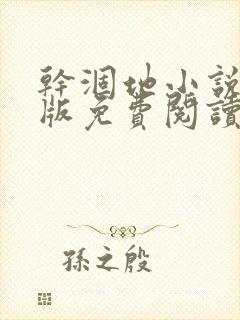 幹涸地小説
版免費閱讀
孫之殷